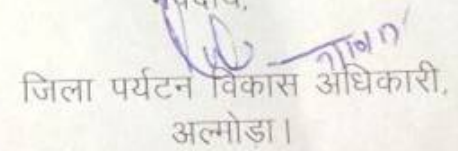 जिला पर्यटन विकास अधिकारी,
अल्मोड़ा।